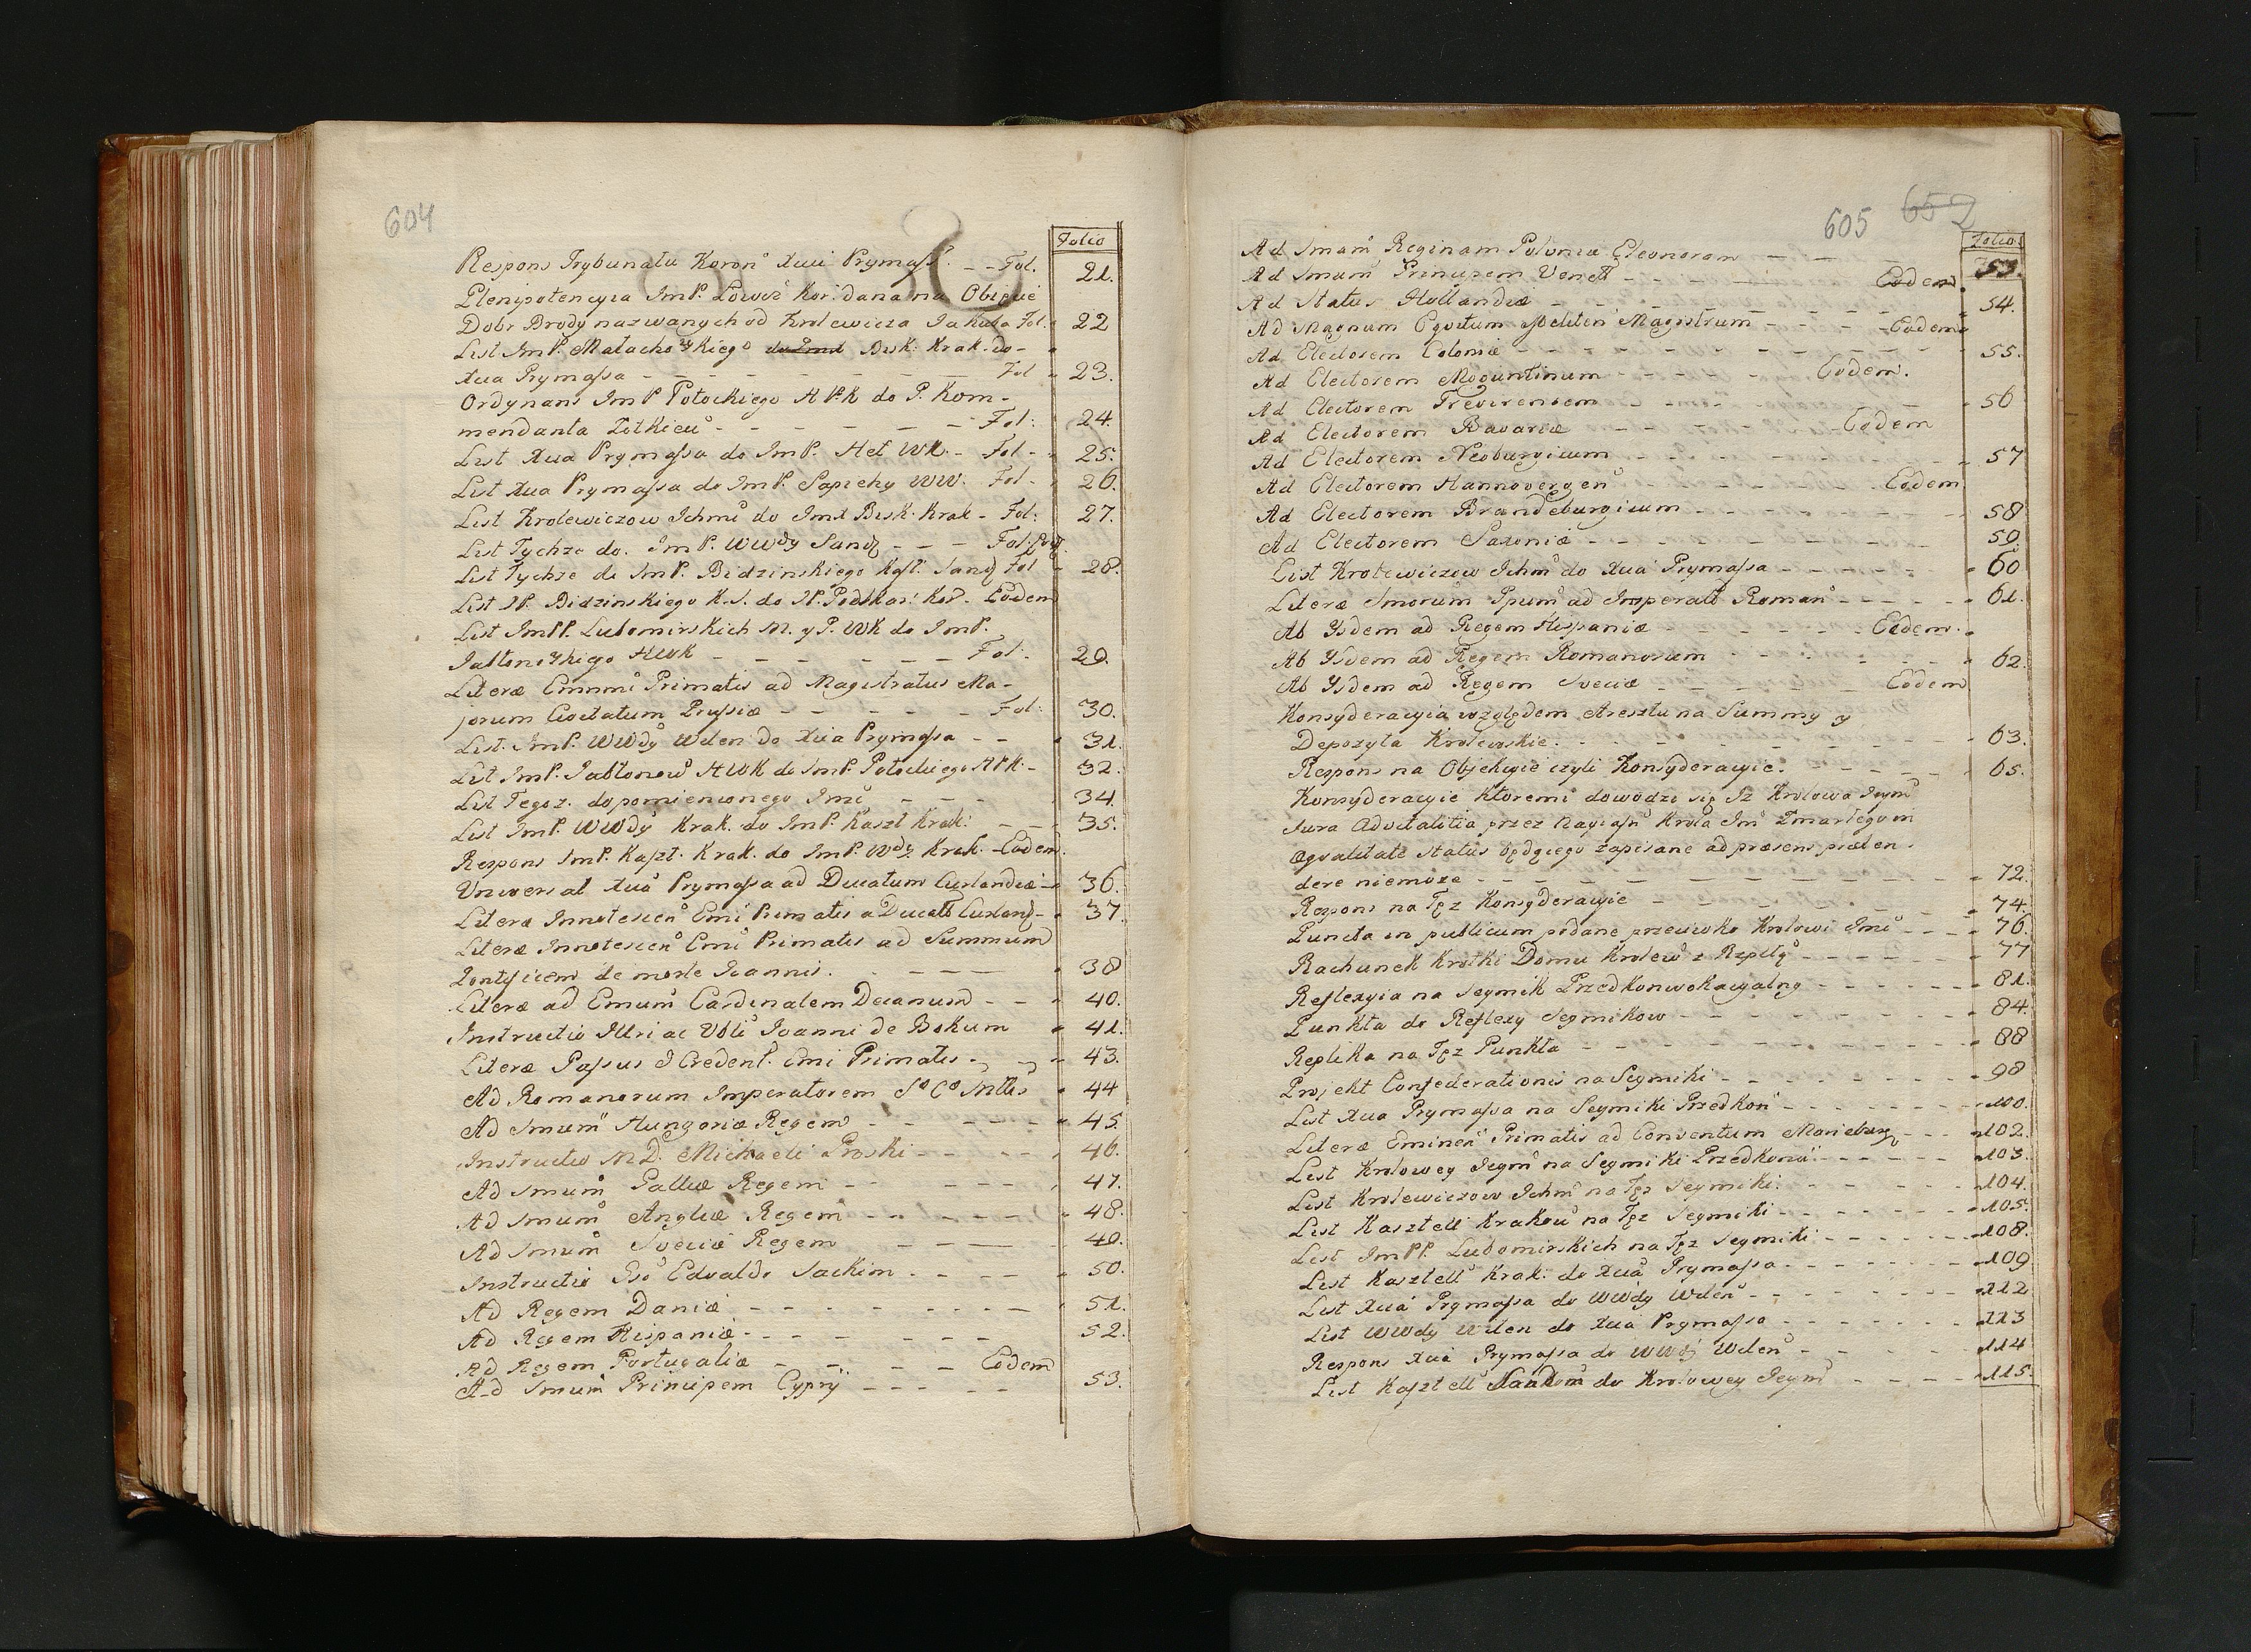 604
Folio
Respons Trybunału Koroñ Xcui Prymass. - - Fol. 21.
Plenipotencyia ImP. Łowcz: Kor: dana na Objęcie
Dobr Brody nazwanych od Krolewicza Jakuba Fol: 22
List ImP. Małachowskiego do Imć Bisk: Krak. do -
Xcia Prymassa - - - - - - - - Fol 23.
Ordynans ImP Potockiego HPK do P. Kom-
mendanta Zołkieu - - - - - - Fol: 24.
List Xcia Prymassa do ImP. Het WK. - Fol - 25.
List Xcia Prymassa do ImP. Sapiehy WW. Fol - 26.
List Krolewiczow Ichmć do ImX Bisk. Krak - Fol: 27.
List Tychże do. ImP. WWdy Sand - - - Fol:
List Tychże do ImP. Bidzinskiego Kaszt. Sand Fol - 28.
List JP. Bidzinskiego K.S. do JP. Podskar: Kor - Eodem
List ImPP. Lubomirskich M. y P. WK do ImP.
Jabłonowskiego HWK - - - - - - Fol: 29.
Literæ Emmi Primatis ad Magistratus Ma-
jorum Civitatum Prussiæ - - - - - Fol: 30.
List. ImP. WWdy Wilen do Xcia Prymassa - - 31.
List ImP. Jabłonow HWK do ImP. Potockiego HPK - 32.
List Tegoz. do pomienionego Imć - - - 34.
List ImP. WWdy Krak. do ImP. Kaszt Krak: - - 35.
Respons ImP. Kaszt. Krak. do ImP. Wdy Krak. - Eodem.
Uniwersał Xcia Prymassa ad Ducatum Curlandiæ - 36.
Literæ Innotescen Emi Primatis a Ducatu Curland - 37.
Literæ Innotescen Emi Primatis ad Summum
Pontificem de morte Joannis. - - - - 38
Literæ ad Emum Cardinalem Decanum - - - 40.
Instructio Illri ac Vbli Joanni de Bokum 41.
Literæ Passus & Credent. Emi Primatis - - - 43.
Ad Romanorum Imperatorem 44
Ad Smum Hungoriæ Regem - - - - - 45.
Instructio M.D. Michaeli Proski - - - - - 46.
Ad Smum Galliæ Regem - - - - - 47.
Ad Smum Angliæ Regem - - - - - 48.
Ad Smum Sveciæ Regem - - - - 49.
Instructio Edvaldo Sackin - - - - 50.
Ad Regem Daniæ - - - - - - - - 51.
Ad Regem Hispaniæ - - - - - - - 52.
Ad Regem Portugaliæ - - - - - Eodem
Ad Smum Principem Cyprÿ - - - - - 53.
605 652
Folio
Ad Smam Reginam Poloniæ Eleonoram - - - 53.
Ad Smum Principem Venet - - - - - Eodem.
Ad Status Hollandiæ - - - - - - - - 54.
Ad Magnum Eqvitum Meliten Magistrum - - - - Eodem
Ad Electorem Coloniæ - - - - - - - - - - 55.
Ad Electorem Moguntinum - - - - - Eodem.
Ad Electorem Trevirensem - - - - - - - 56
Ad Electorem Bavariæ - - - - - - Eodem
Ad Electorem Neoburgicum - - - - - - - 57
Ad Electorem Hannovergen - - - - - - Eodem
Ad Electorem Brandeburgicum - - - - - - - - 58
Ad Electorem Saxoniæ - - - - - - - - - 59.
List Krolewiczow Ichm do Xcia Prymassa - - - - - 60
Literæ Smorum Ppum ad Imperat Roman - - - - - 61.
Ab Ysdem ad Regem Hispaniæ - - - - - - Eodem.
Ab Ysdem ad Regem Romanorum - - - - - - 62.
Ab Ysdem ad Regem Sveciæ - - - - - Eodem
Konsyderacyia względem Aresztu na Summy y
Depozyta Krolewskie. - - - - - - - - 63.
Respons na Objekcyie czyli Konsyderacyie. - - - - 65.
Konsyderacyie ktoremi dowodzi się Iz Krolowa Jeym
Jura Advitalitia przez Nayiasn Krola Jm Zmarłego in
æqvalitate status będącego zapisane ad præsens præten-
dere niemoże - - - - - - - - - - - 72.
Respons na Tęz Konsyderacyie - - - - - - - 74.
Puncta in publicum podane przeciwko Krolowi Imć - - - - 76.
Rachunek krotki Domu Krolew z Rzpltą - - - - - - 77
Reflexyia na Seymik Przedkonwokacyalny - - - - - - 81.
Punkta do Reflexy Seymikow - - - - - - - 84.
Replika na Tęz Punkta - - - - - - - - - - 88
Projekt Confederationis na Seymiki - - - - - - - 98
List Xcia Prymassa na Seymiki Przedkon - - - - - - 100.
Literæ Eminen Primatis ad Conventum Marieburg - - - 102.
List Krolowey Jeym na Seymiki Przedkonw - - - - - 103.
List Krolewiczow Ichm na Tęz Seymiki. - - - - - 104.
List Kasztell Krakow na Tęz Seymiki - - - - - - 105.
List ImPP. Lubomirskich na Tęz Seymiki - - - - - 108.
List Kasztell Krak: do Xcia Prymassa - - - - - - 109
List Xcia Prymassa do WWdy Wilen - - - - - - 112
List WWdy Wilen do Xcia Prymassa - - - - - - 113
Respons Xcia Prymassa do WWdy Wilen - - - - - 114
List Kasztell Sandom do Krolowey Jeym - - - - 115.